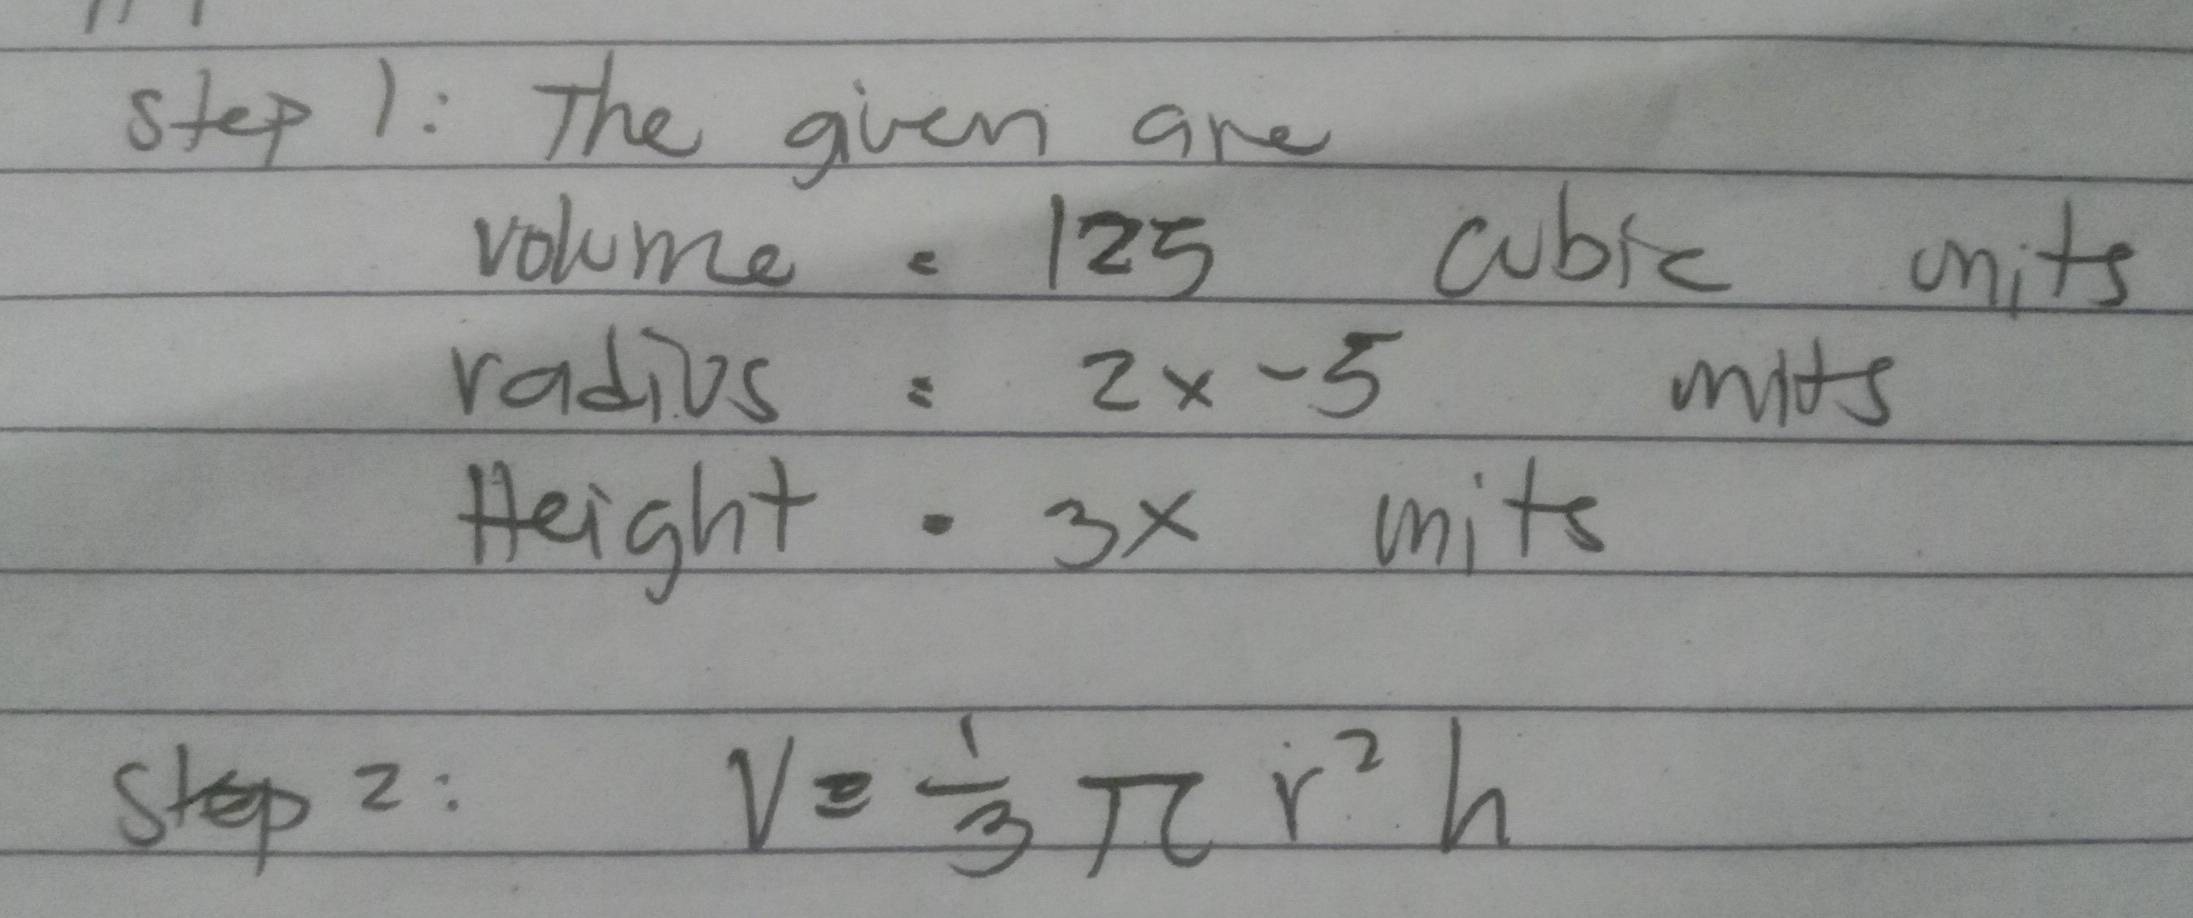 step 1: The given are
volume = 125 cubic units
radius = 2x - 5 units
Height = 3x units
Step 2: V = 1/3 π r² h